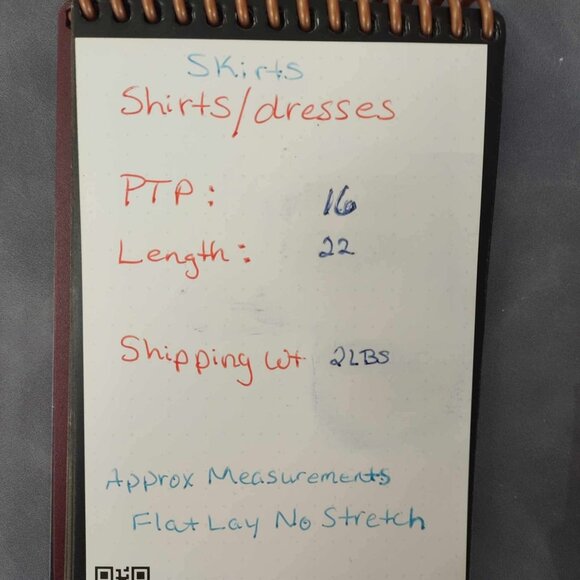 Skirts
Shirts/dresses
PTP: 16
Length: 22
Shipping Wt 2LBS
Approx Measurements
Flat Lay No Stretch